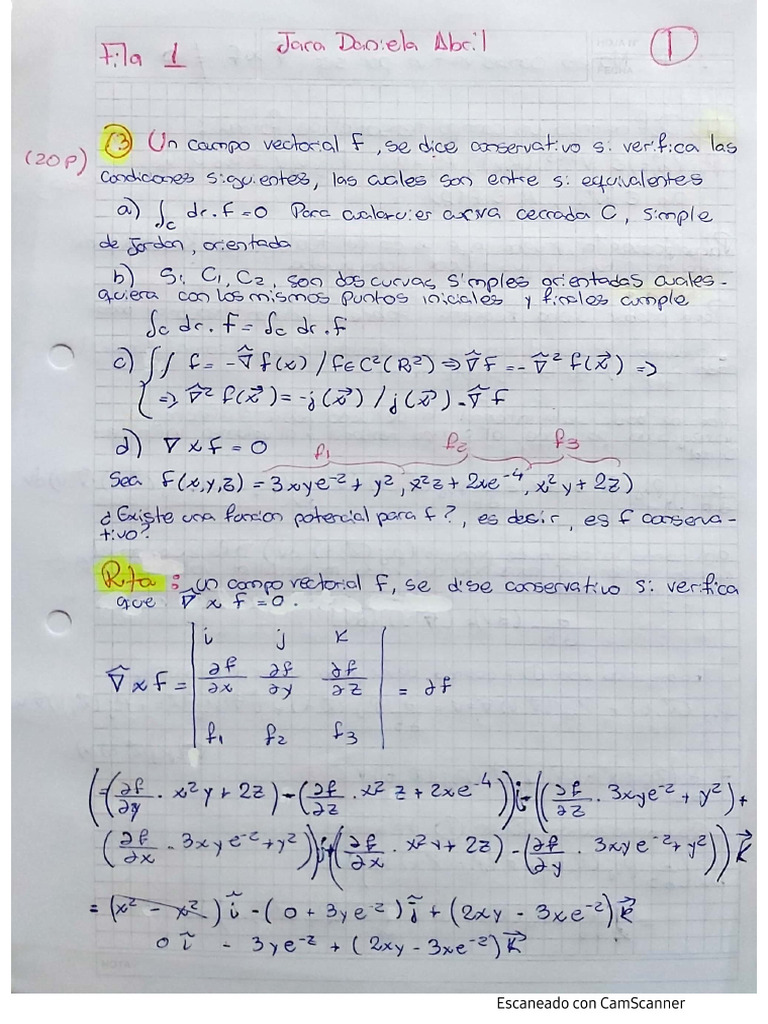 Fila 1
Jara Daniela Abril
1
(20p)
13 Un campo vectorial F, se dice conservativo si verifica las
condiciones siguientes, las cuales son entre si equivalentes
a) ∫c dr.f=0 Para cualquier curva cerrada C, simple
de Jordan, orientada
b) Si C1, C2, son dos curvas simples orientadas cuales-
quiera con los mismos puntos iniciales y finales cumple
∫c dr. F = ∫c dr. F
c) ∫∫ f = -∇̂ f(x) / f∈C²(R²) ⇒ ∇̂f = - ∇̂² f(x⃗) ⇒
⇒ ∇̂² f(x⃗) = -j(x⃗) / j(x⃗) - ∇̂ f
d) ∇ x f = 0
f1 f2 f3
Sea F(x,y,z) = 3xye⁻² + y², x²z + 2xe⁻⁴, x²y + 2z)
¿Existe una funcion potencial para f?, es desir, es f conserva-
tivo?
Rta: un campo vectorial F, se dise conservativo si verifica
que ∇̂ x f = 0.
i j k
∇̂ x F = ∂f/∂x ∂f/∂y ∂f/∂z = ∂f
f1 f2 f3
(=(∂f/∂y . x²y + 2z) - (∂f/∂z . x² z + 2xe⁻⁴))i - ((∂f/∂z . 3xye⁻² + y²) +
(∂f/∂x - 3xye⁻² + y²))j + (∂f/∂x . x²y + 2z) - (∂f/∂y . 3xye⁻² + y²)) k⃗
= (x² - x²) ĩ - (0 + 3ye⁻²) j̃ + (2xy - 3xe⁻²) k⃗
0 ĩ - 3ye⁻² + (2xy - 3xe⁻²) k⃗
Escaneado con CamScanner